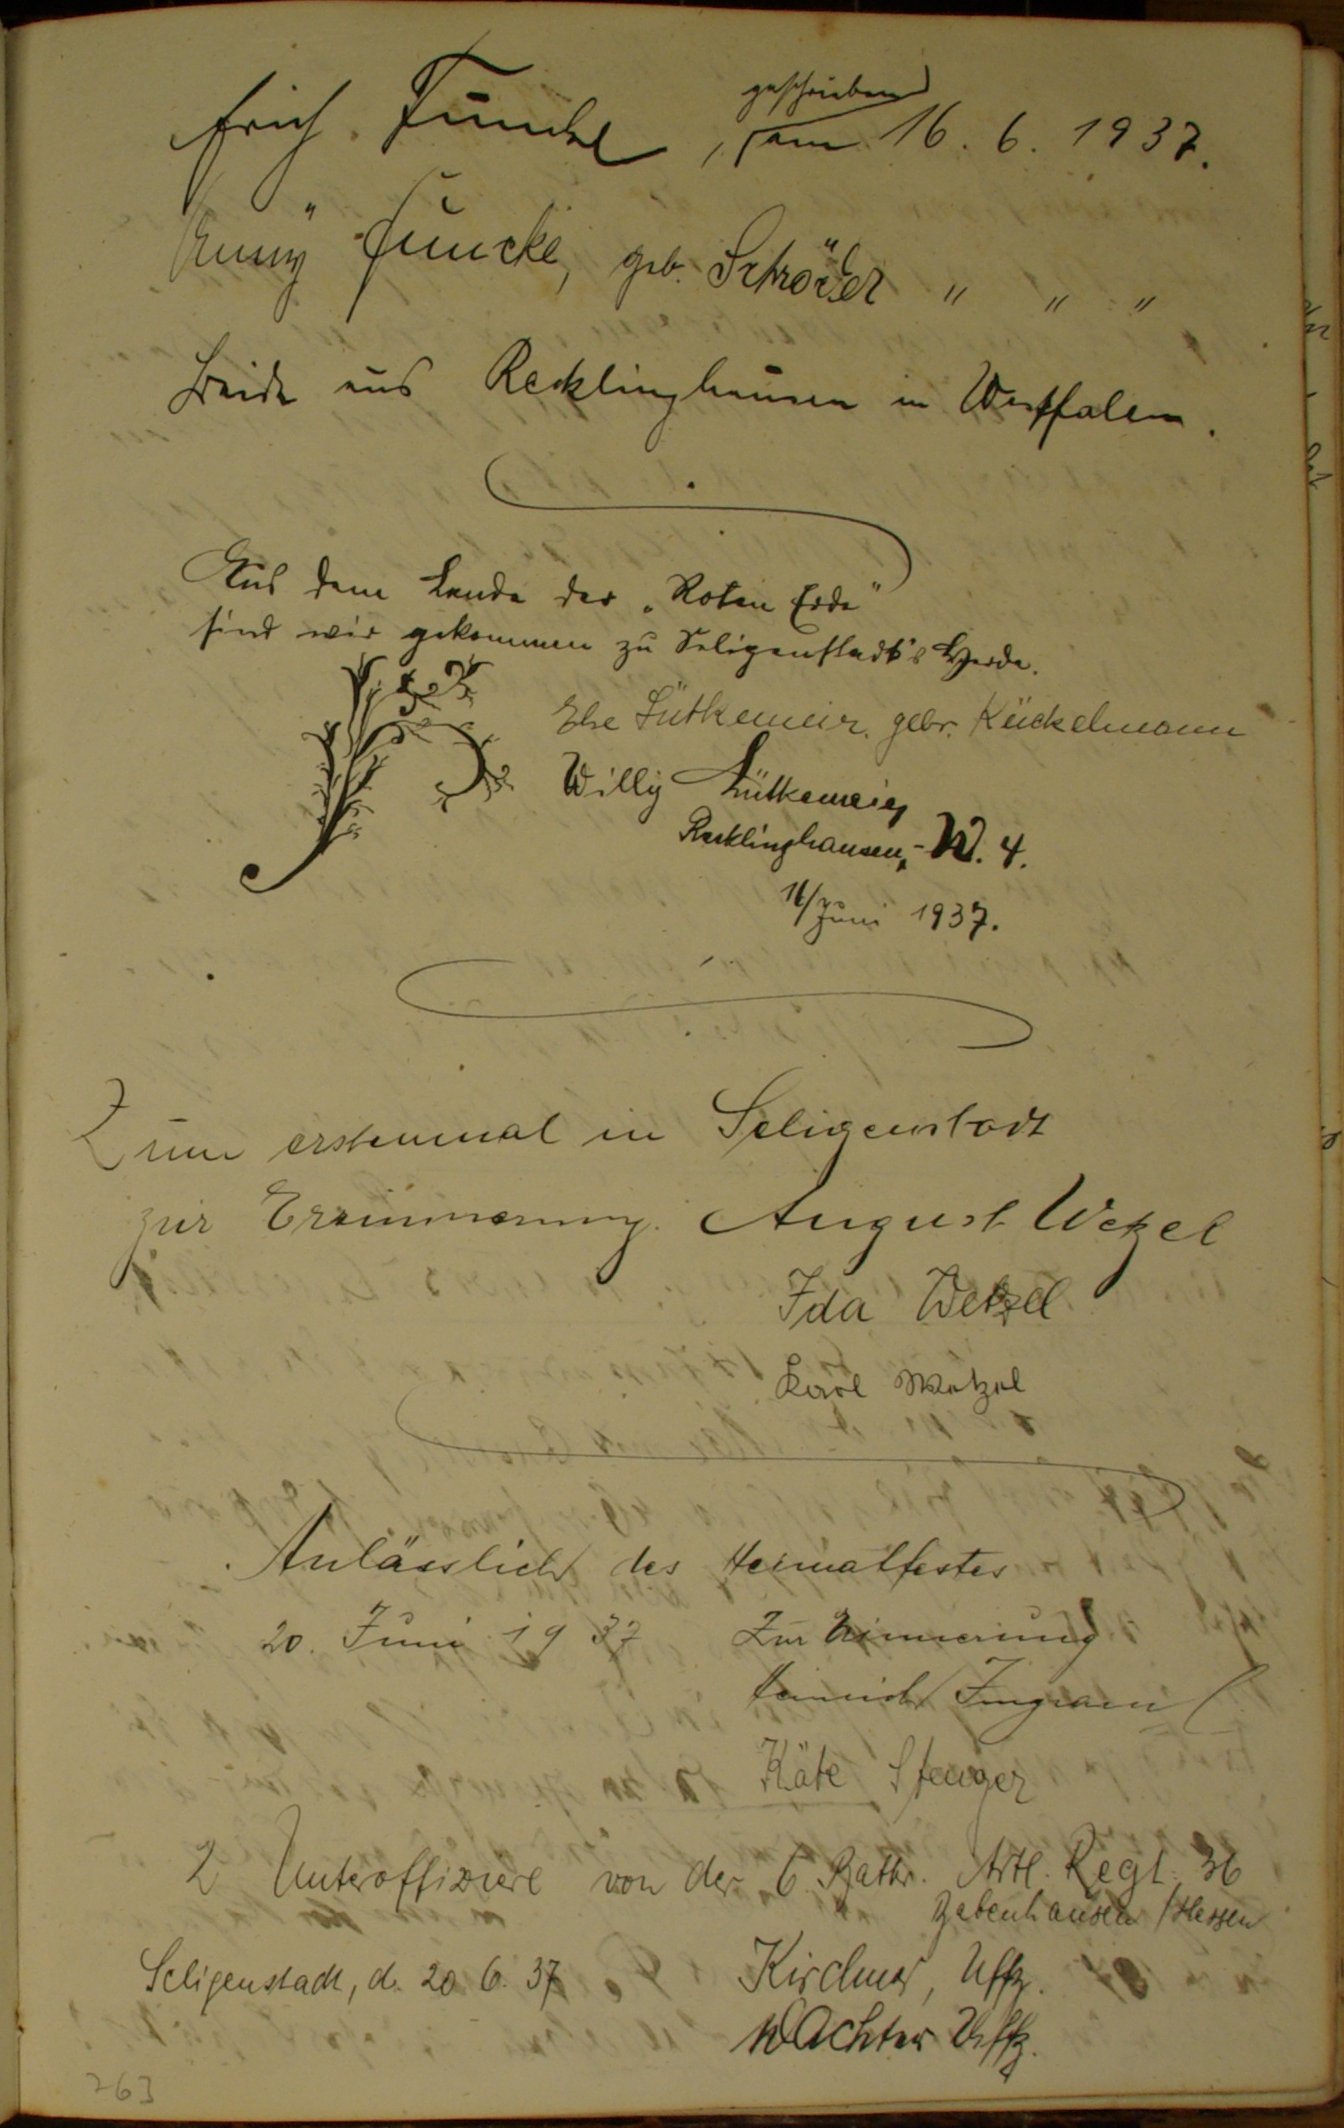 geschrieben
Erich Funcke, am 16. 6. 1937.
Änny Funcke, geb. Schröder " " "
Beide aus Recklinghausen in Westfalen.
Aus dem Lande der „Roten Erde"
sind wir gekommen zu Seligenstadt's Herde.
Else Lütkemeier, gebr. Kückelmann
Willy Lütkemeier
Recklinghausen,-W. 4.
16/Juni 1937.
Zum erstenmal in Seligenstadt
zur Erinnerung. August Wetzel
Ida Wetzel
Karl Wetzel
Anlässlich des Heimatfestes
20. Juni 1937 Zur Erinnerung
Heinrich
Käte Stenger
2 Unteroffiziere von der 6. Battr. Artl. Regt. 36
Babenhausen / Hessen
Seligenstadt, d. 20. 6. 37 Kirchner, Uffz.
Wachter Uffz.
263